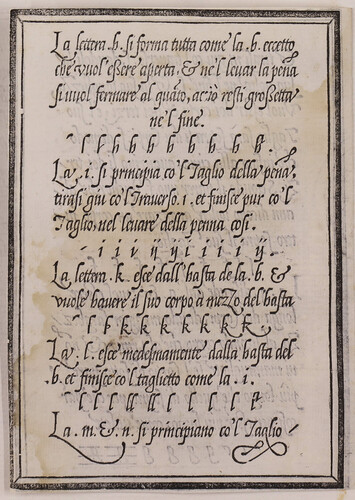 La lettera .h. si forma tutta come la .b. eccetto
che vuol essere aperta, & ne'l levar la pena
si vuol fermare al quãto, acciò resti grossetta
ne'l fine.
ſ l h h h h h h h h h
La .i. si principia co'l Taglio della pena,
tirasi giu co'l Traverso .i. et finisce pur co'l
Taglio, nel levare della penna cosi.
i i i ij ij i i i i ij
La lettera .k. esce dall'hasta de la .b. &
vuole havere il suo corpo a mezo del hasta
l l k k k k k k k k
La .l. esce medesmamente dalla hasta del
.b. et finisce co'l taglietto come la .i.
l l l ll ll l l l l l
La .m. & .n. si principiano co'l Taglio